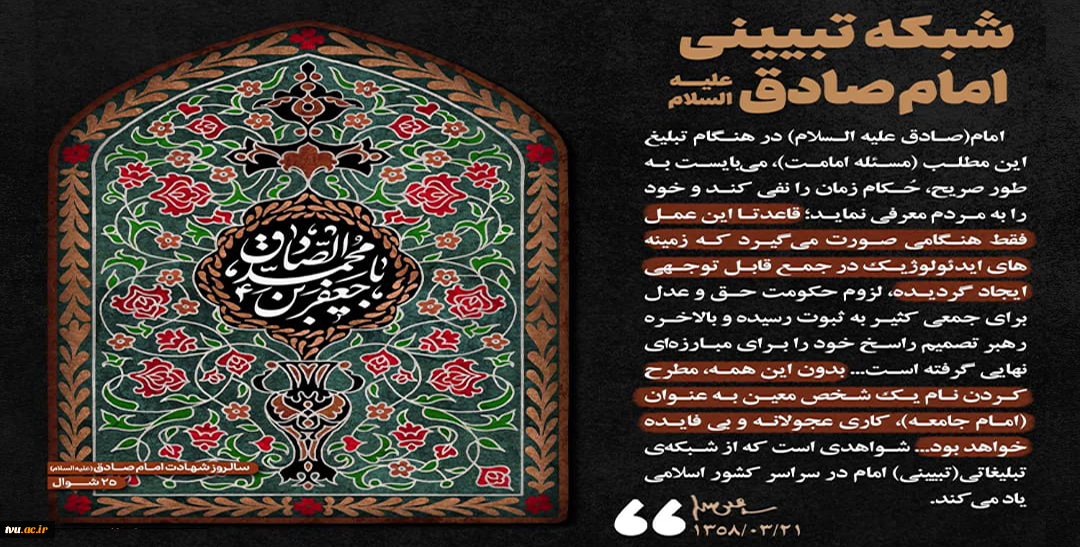 شبکه تبیینی
امام صادق علیه السلام
امام(صادق علیه السلام) در هنگام تبلیغ
این مطلب (مسئله امامت)، می‌بایست به
طور صریح، حُکام زمان را نفی کند و خود
را به مردم معرفی نماید؛ قاعدتا این عمل
فقط هنگامی صورت می‌گیرد که زمینه
های ایدئولوژیک در جمع قابل توجهی
ایجاد گردیده، لزوم حکومت حق و عدل
برای جمعی کثیر به ثبوت رسیده و بالاخره
رهبر تصمیم راسخ خود را برای مبارزه‌ای
نهایی گرفته است... بدون این همه، مطرح
کردن نام یک شخص معین به عنوان
(امام جامعه)، کاری عجولانه و بی فایده
خواهد بود... شواهدی است که از شبکه‌ی
تبلیغاتی(تبیینی) امام در سراسر کشور اسلامی
یاد می‌کند.
۱۳۵۸/۰۳/۲۱
یا جعفر بن محمد الصادق
سالروز شهادت امام صادق (علیه السلام)
۲۵ شوال
tvu.ac.ir